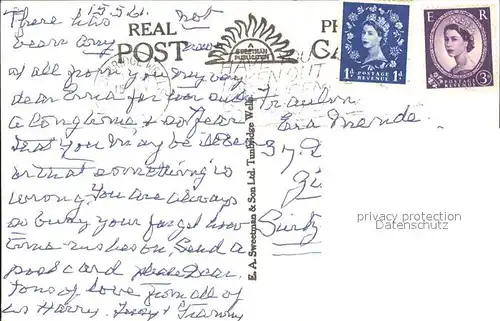 15.5.61.
There has not
been any news
at all from you my
dear Erna for ever such
a long time & so I fear
that you may be ill
or that something is
wrong. You are always
so busy you forget how
time rushes on. Send a
postcard please Dear.
Tons of love from all of
us Harry.
REAL PH
POST CA
A SWEETMAN
PUBLICATION
E. A. Sweetman & Son Ltd. Tunbridge Wells
1D POSTAGE REVENUE 1D
E R
POSTAGE REVENUE 3D
Fraulein
Erna
37
privacy protection
Datenschutz